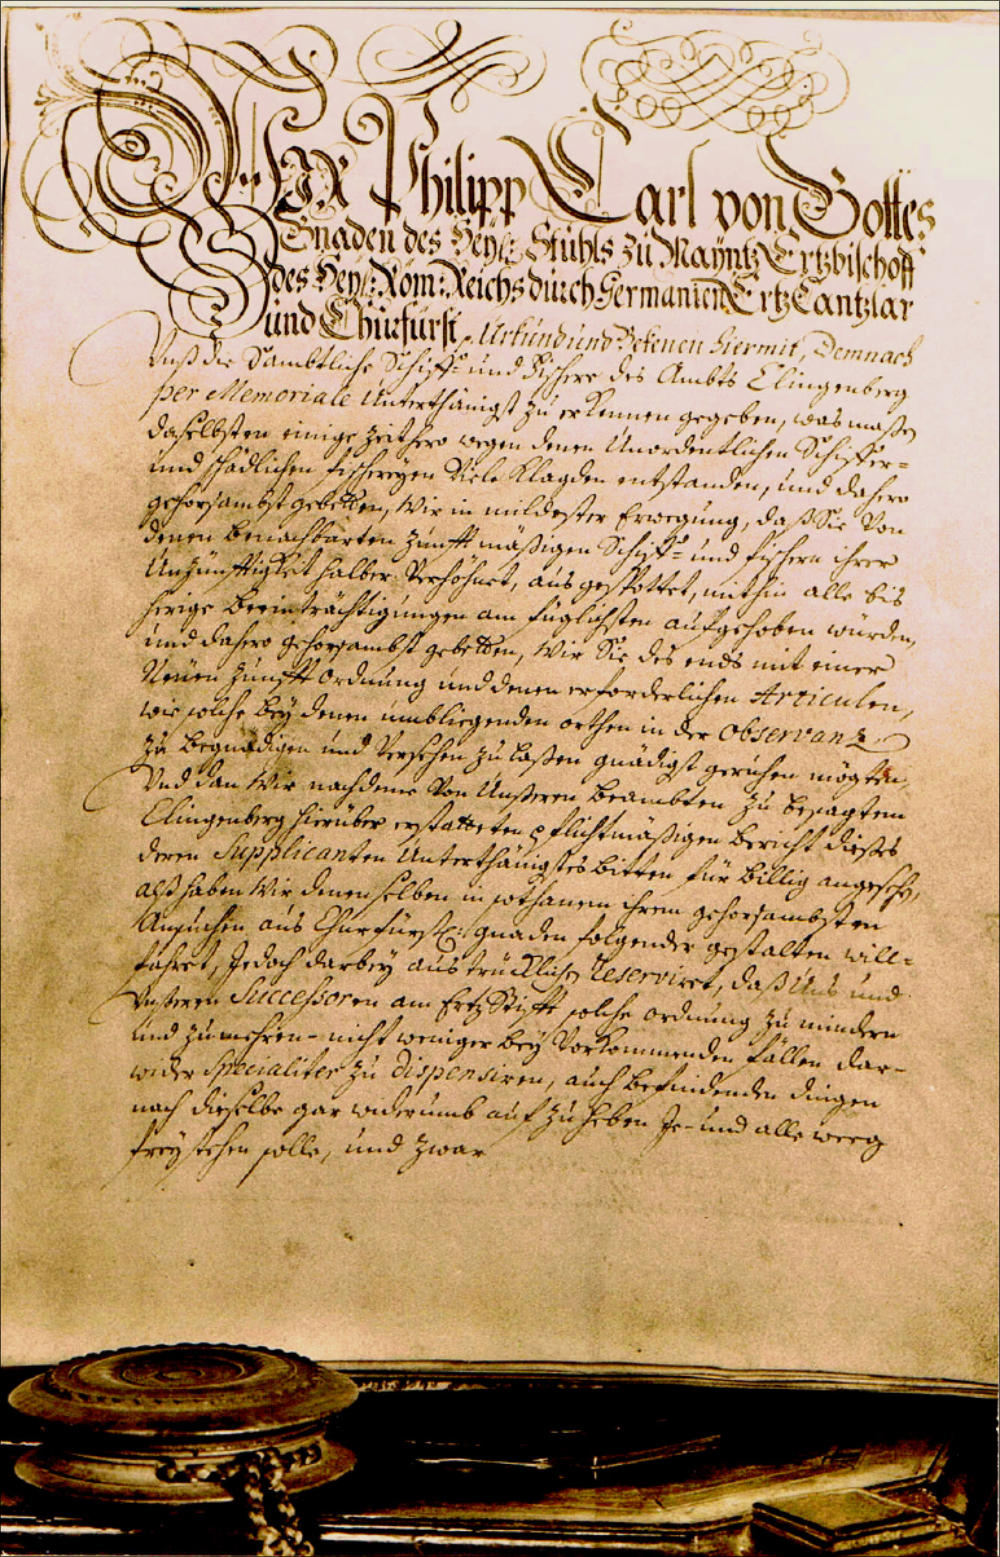 Wir Philipp Carl von Gottes
Gnaden des Heyl: Stuhls zu Mayntz Ertzbischoff
des Heyl: Röm: Reichs durch Germanien Ertz Cantzlar
und Churfürst, Urkund und Bekenen hiermit, Demnach
Unß die Sambtliche Schiff- und Fischere des Ambts Clingenberg
per Memoriale Unterthänigst zu erkennen gegeben, was maßen
daselbsten einige zeithero wegen denen Unordentlichen Schiffer-
und schädlichen fischereyen Viele Klagden entstanden, und dahero
gehorsambst gebetten, Wir in mildester Erwegung, daß Sie Von
denen benachbarten zunfftmäßigen Schiff- und fischern ihrer
Unzünfftigkeit halber Verhöhnet, ausgespottet, mithin alle bis
herige beeinträchtigungen am füglichsten aufgehoben würden,
und dahero gehorsambst gebetten, Wir Sie des ends mit einer
Neuen Zunfft ordnung und denen erforderlichen Articulen,
wie solche bey denen umbliegenden orthen in der observanz
zu begnadigen und Versehen zu laßen gnädigst geruhen mögten,
Und dan Wir nachdeme Von Unßeren beambten zu besagtem
Clingenberg hierüber erstatteten pflichtmäßigen bericht dießes
deren Supplicanten Unterthänigstes bitten für billig angesehen,
alß haben Wir denenselben in sothanem ihrem gehorsambsten
Ansuchen aus Churfürstl: gnaden folgender gestalten will-
fahret, Jedoch darbey austrücklich Reserviret, daß Uns und
Unßeren Successoren am Ertz Stifft solche ordnung zu mindern
und zu mehren- nicht weniger bey Vorkommenden fällen dar-
wider Specialiter zu dispensiren, auch befindenden dingen
nach dieselbe gar widerumb aufzuheben Je- und alle weeg
freystehen solle, und zwar